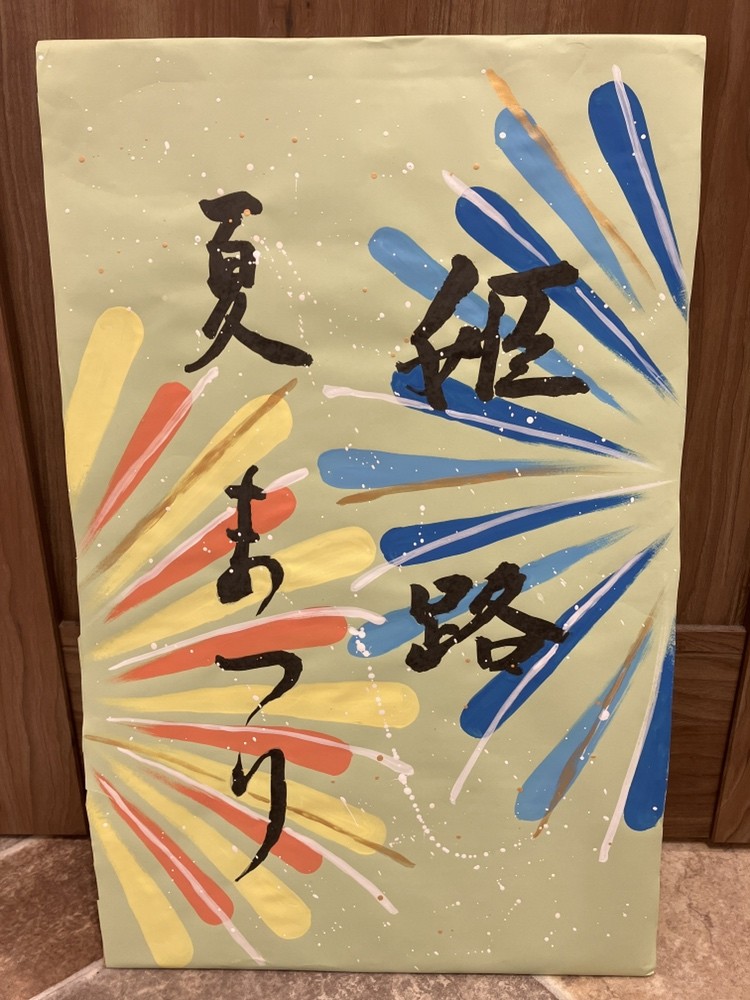 姫路
夏まつり